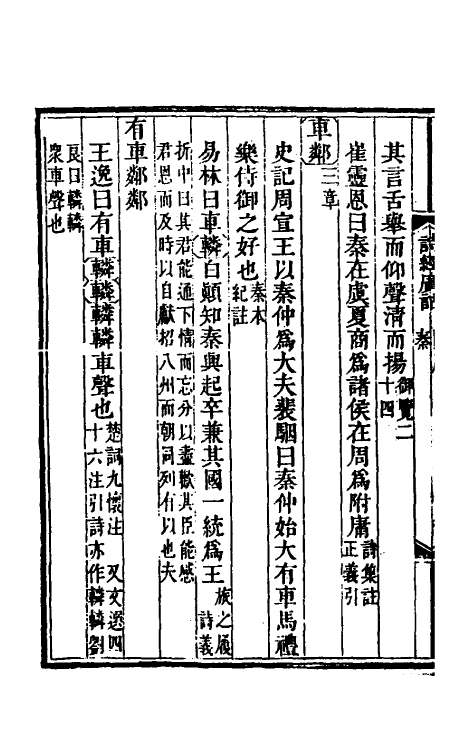 其言舌舉而仰聲清而揚御覽二十四
崔靈恩曰秦在虞夏商爲諸侯在周爲附庸詩集註正義引
車鄰三章
史記周宣王以秦仲爲大夫裴駰曰秦仲始大有車馬禮
樂侍御之好也秦本紀註
易林曰車轔白顚知秦興起卒兼其國一統爲王族之履詩義
折中曰其君能通下情而忘分以盡歡其臣能感
君恩而及時以自獻招八州而朝同列有以也夫
有車鄰鄰
王逸曰有車轔轔轔轔車聲也楚詞九懷注 又文選四十六注引詩亦作轔轔劉
良曰轔轔
衆車聲也
詩經廣詁 秦